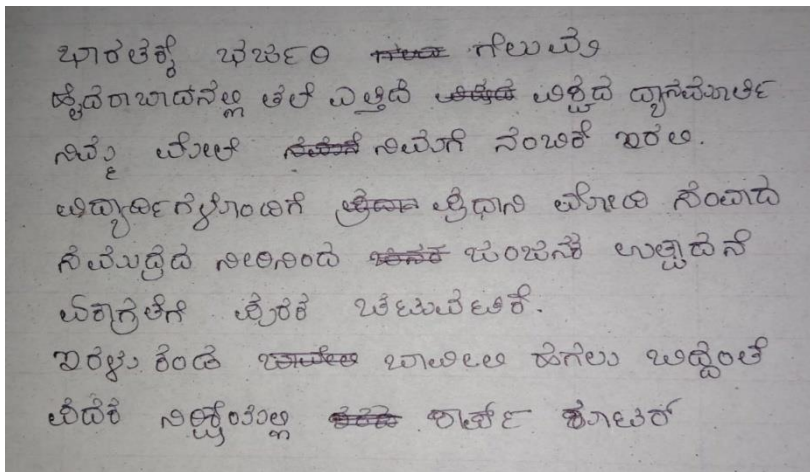 ಭಾರತಕ್ಕೆ ಭರ್ಜರಿ ಗೆಲುವು
ಹೈದರಾಬಾದನಲ್ಲಿ ತಲೆ ಎತ್ತಿದೆ ವಿಶ್ವದ ಧ್ಯಾನಮೂರ್ತಿ
ನಿಮ್ಮ ಮೇಲೆ ನಿಮಗೆ ನಂಬಿಕೆ ಇರಲಿ.
ವಿದ್ಯಾರ್ಥಿಗಳೊಂದಿಗೆ ಪ್ರಧಾನಿ ಮೋದಿ ಸಂವಾದ
ಸಮುದ್ರದ ನೀರಿನಿಂದ ಜಲಜನಕ ಉತ್ಪಾದನೆ
ಏಕಾಗ್ರತೆಗೆ ಪೂರಕ ಚಟುವಟಿಕೆ.
ಇರಳು ಕಂಡ ಬಾವೀಲಿ ಹಗಲು ಬಿದ್ದಂತೆ
ಪದಕ ನಿರೀಕ್ಷೆಯಲ್ಲಿ ಶಾರ್ಪ್ ಶೂಟರ್